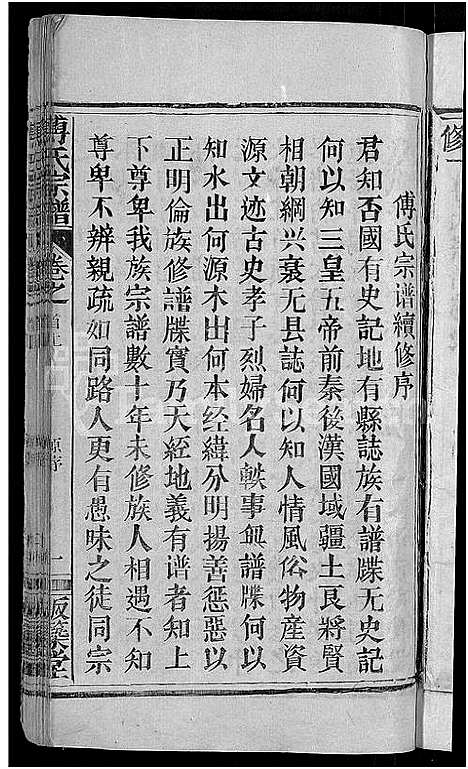 傅氏宗谱續修序
君知否國有史記地有縣誌族有譜牒无史記
何以知三皇五帝前秦後漢國域疆土良將賢
相朝綱兴衰无县誌何以知人情風俗物産資
源文迹古史孝子烈婦名人軼事無譜牒何以
知水出何源木出何本经緯分明揚善惩惡以
正明倫族修譜牒實乃天經地義有谱者知上
下尊卑我族宗譜數十年未修族人相遇不知
尊卑不辨親疏如同路人更有愚昧之徒同宗
傅氏宗譜
卷之
原序
一
版築堂
修